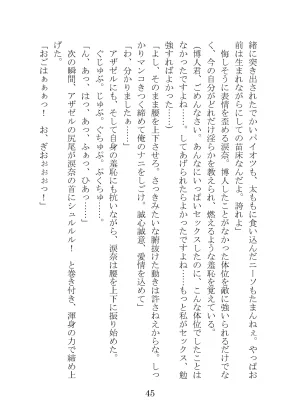 緒に突き出されたでかいパイオツも、太ももに食い込んだニーソもたまんねぇ。やっぱお
前は生まれながらにしての苗床なんだよ。誇れよ」
　悔しそうに表情を歪める涙奈。博人としたことがなかった体位を敵に強いられるだけでな
く、今の自分がどれだけ淫らかを教えられ、燃えるような羞恥を覚えていく。
（博人君、ごめんなさい。あんなにいっぱいセックスしたのに、こんな体位でしたことは
なかったですよね……してあげられたらよかったですよね……もっと私がセックス、勉
強すればよかった……）
「よし、そのまま腰を上下させろ。さっきみたいな腑抜けた動きは許さねえからな。しっ
かりマンコきつく締めて俺のナニをしごけ。誠心誠意、愛情を込めて」
「わ、分かりましたぁ……」
　アザゼルにも、そして自身の羞恥にも抗いながら、涙奈は腰を上下に振り始めた。
　ぐじゅぷ、じゅぷ、ぐちゅぷ、ぷくちゅ……。
「ん、あっ、はっ、あっ、ふぁっ、ひあっ……」
　次の瞬間、アザゼルの尻尾が涙奈の首にシュルルル！　と巻き付き、渾身の力で締め上
げた。
「おごはぁぁぁっ！　お、ぎおぉぉぉっ！」
45